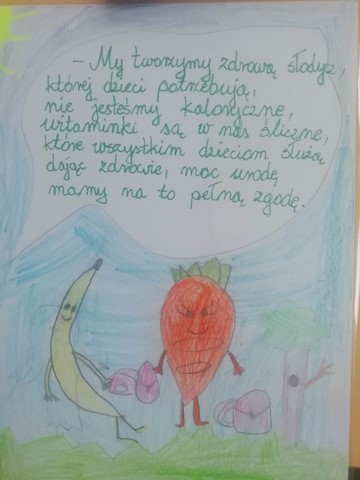 - My tworzymy zdrową słodycz,
której dzieci potrzebują,
nie jesteśmy kaloryczne,
witaminki są w nas śliczne,
które wszystkim dzieciom służą
dając zdrowie, moc urodę,
mamy na to pełną zgodę.